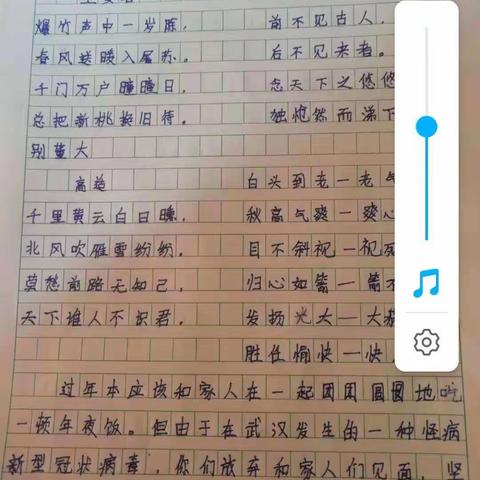 爆竹声中一岁除， 前不见古人，
春风送暖入屠苏。 后不见来者。
千门万户曈曈日， 念天下之悠悠
总把新桃换旧符。 独怆然而涕下
别董大
高适 白头到老一老气
千里黄云白日曛， 秋高气爽一爽心
北风吹雁雪纷纷。 目不斜视一视死
莫愁前路无知己， 归心如箭一箭不
天下谁人不识君。 发扬光大一大
胜任愉快一快
过年本应该和家人在一起团团圆圆地吃
一顿年夜饭。但由于在武汉发生的一种怪病
新型冠状病毒，你们放弃和家人们见面，坚